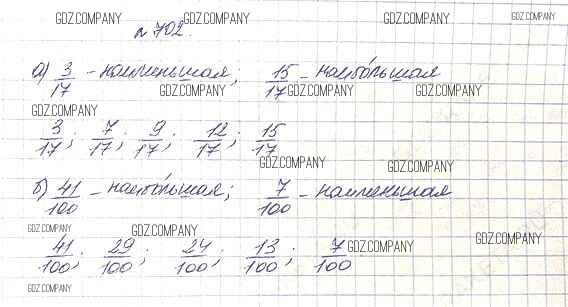 GDZ.COMPANY GDZ.COMPANY GDZ.COMPANY GDZ.COMPANY
№ 702.
а) 3/17 - наименьшая; 15/17 - наибольшая
GDZ.COMPANY GDZ.COMPANY GDZ.COMPANY
GDZ.COMPANY
3/17; 7/17; 9/17; 12/17; 15/17
GDZ.COMPANY GDZ.COMPANY
б) 41/100 - наибольшая; 7/100 - наименьшая
GDZ.COMPANY GDZ.COMPANY GDZ.COMPANY GDZ.COMPANY
41/100; 29/100; 24/100; 13/100; 7/100
GDZ.COMPANY